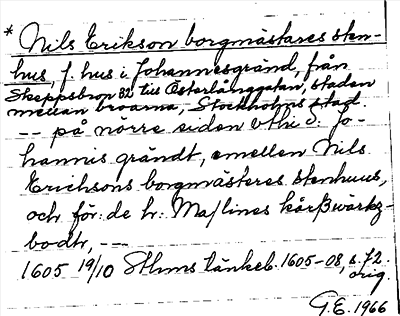 * Nils Erikson borgmästares sten-
hus, f. hus i Johannesgränd, från
Skeppsbron 32 till Österlånggatan, staden
mellan broarna, Stockholms stad.
-- på nörre siden vthi S: Jo-
hannis grändt, emellen Nils
Erichsons borgmästeres stenhuus,
och för: de hr: Ma/lines kårßwärkz-
bodtr, --
1605 19/10 Sthms tänkeb. 1605-08, s. 72.
orig.
G.E. 1966